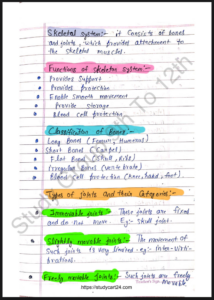 Skeletal system:- it consists of bones
and joints, which provides attachment to
the skeletal muscles.
Functions of skeletal system:-
Provides Support
Provides protection
Enable smooth movement
Provide storage
Blood cell protection
Classification of Bones:-
Long Bones (Femur, Humerus)
Short Bones (Carpel)
Flat Bones (Skull, Ribs)
Irregular Bones (Vertebrate)
Blood cell protection
Types of joints and their Categories:-
Immovable joints:- These joints are fixed
and do not move. Eg:- Skull joint.
Slightly movable joints:- The movement of
Such joints is very limited. eg:- Inter-Verte-
bral
Freely movable Joints:- Such joints are freely
Movable
https://studycart24.com